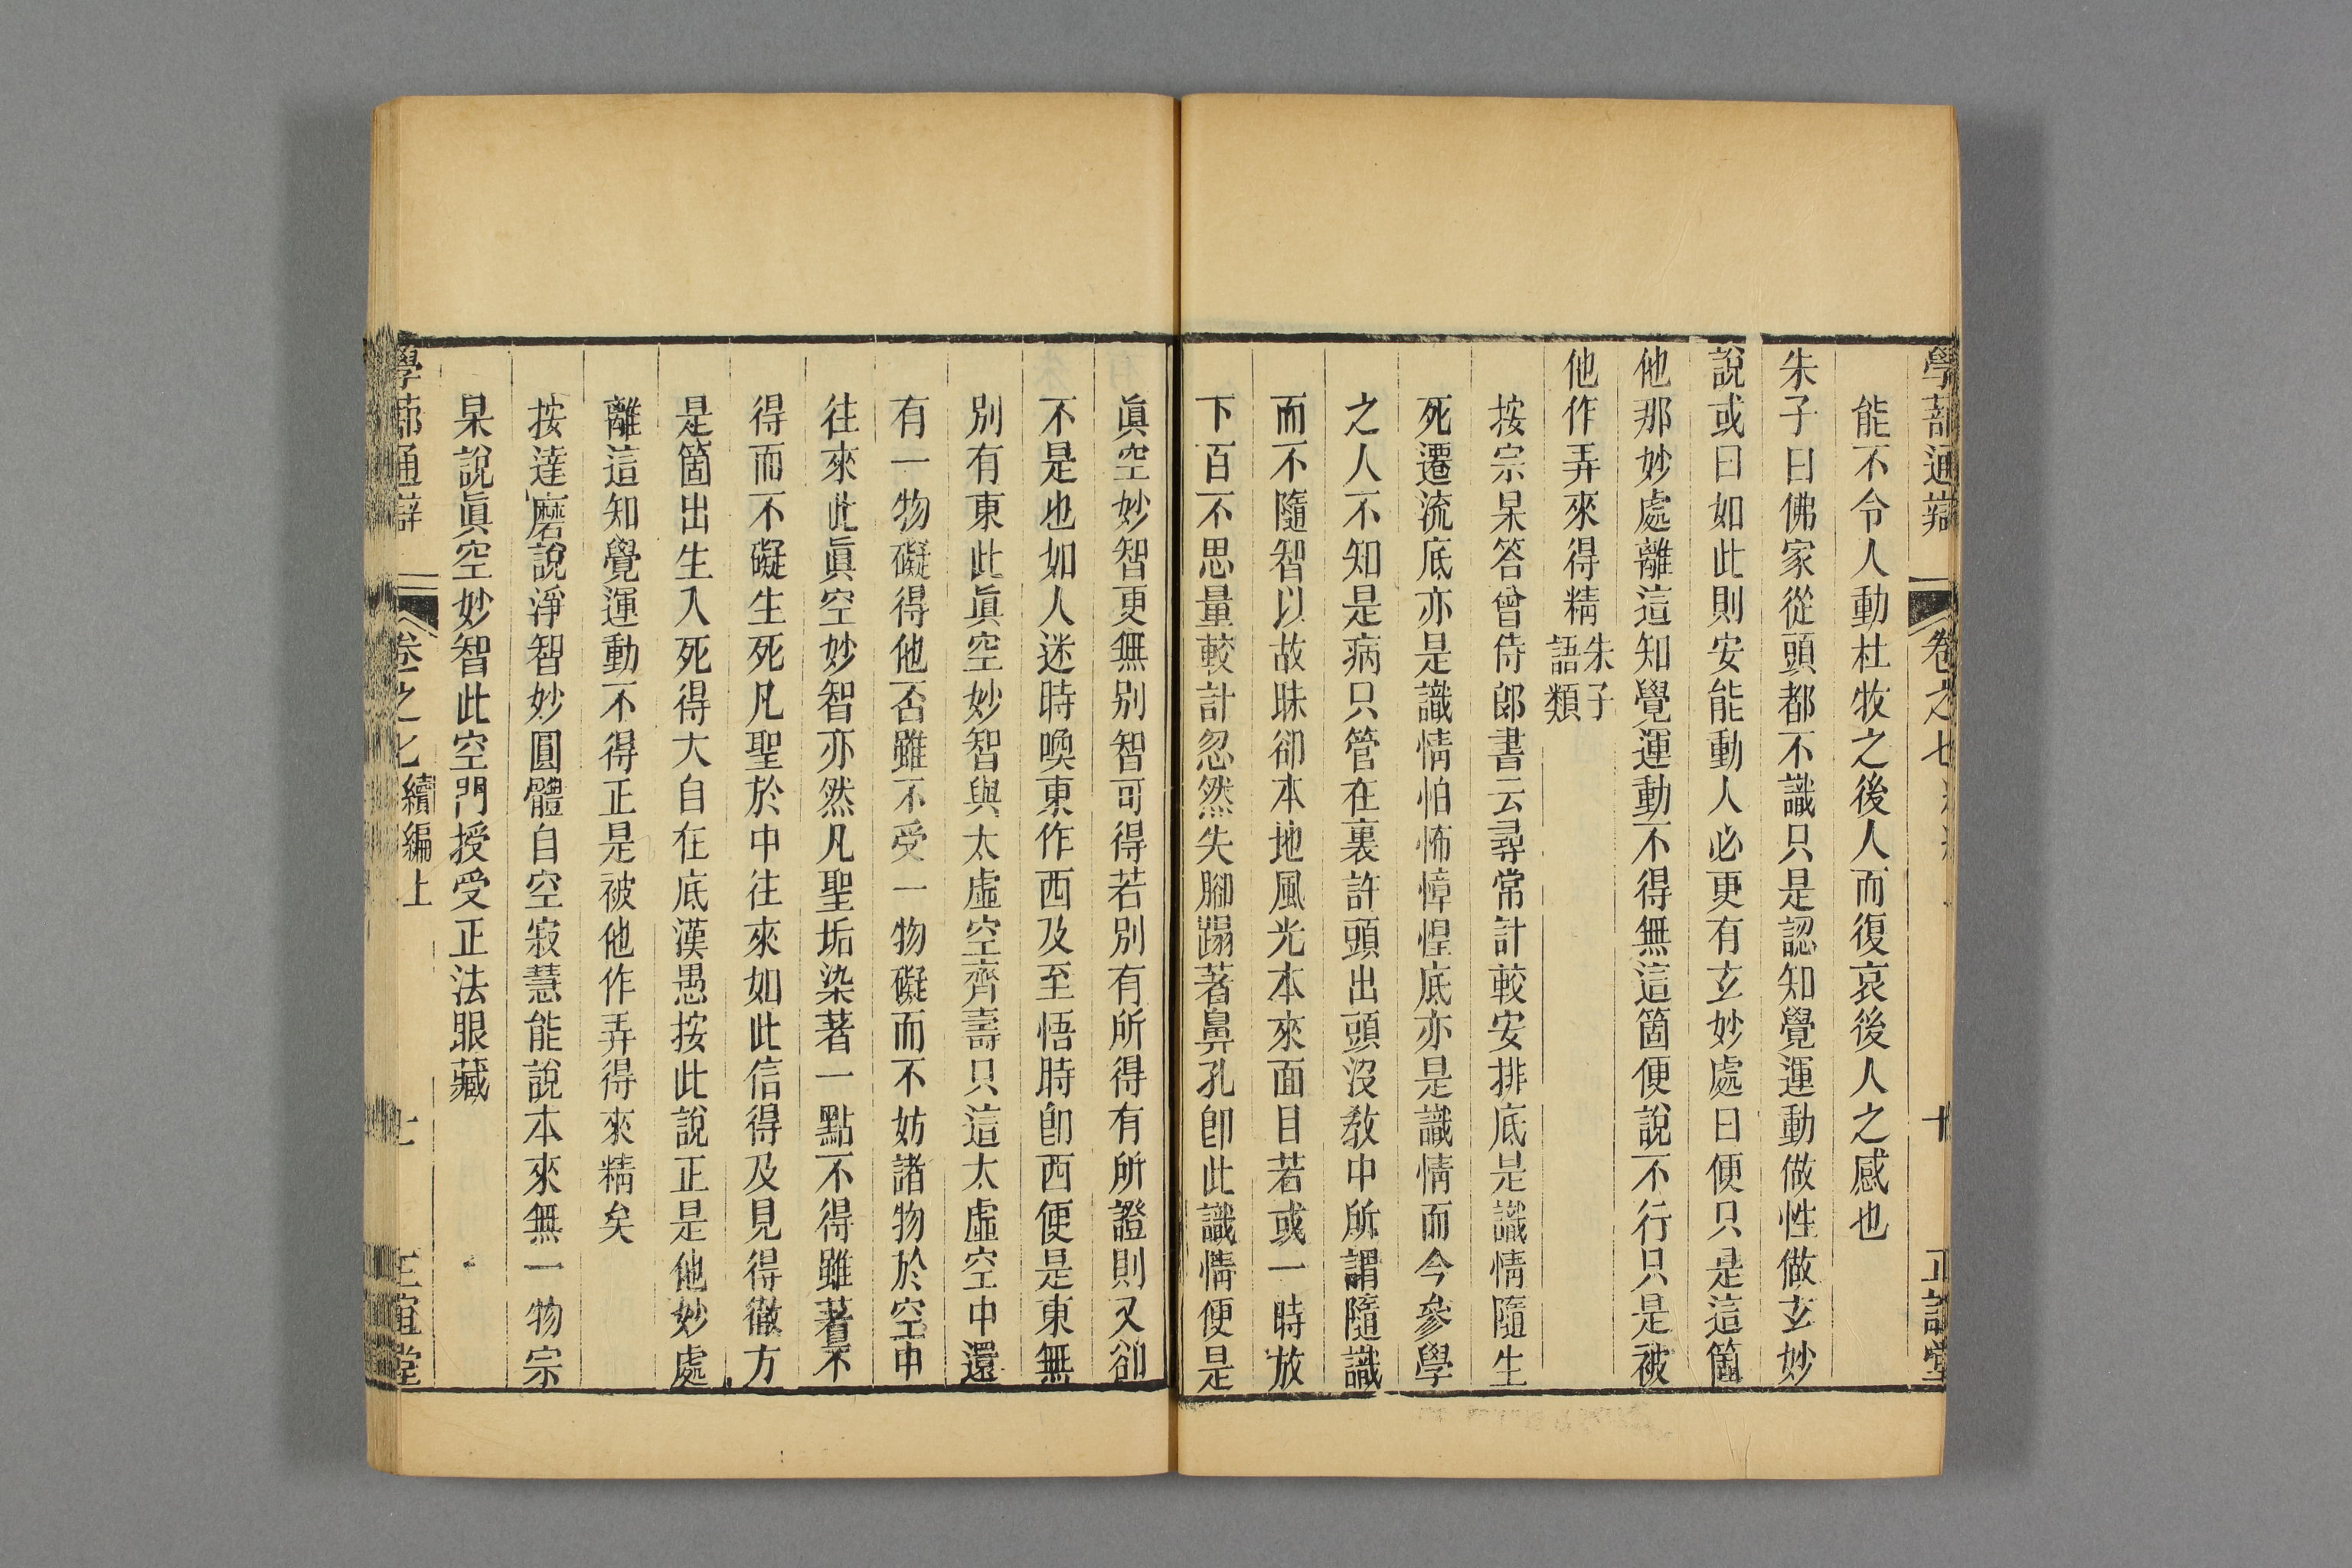 學蔀通辯 卷之七 十 正誼堂
能不令人動杜牧之後人而復哀後人之感也
朱子曰佛家從頭都不識只是認知覺運動做性做玄妙
說或曰如此則安能動人必更有玄妙處曰便只是這箇
他那妙處離這知覺運動不得無這箇便說不行只是被
他作弄來得精朱子語類
按宗杲答曾侍郎書云尋常計較安排底是識情隨生
死遷流底亦是識情怕怖慞惶底亦是識情而今參學
之人不知是病只管在裏許頭出頭沒敎中所謂隨識
而不隨智以故昧卻本地風光本來面目若或一時放
下百不思量較計忽然失腳蹋著鼻孔卽此識情便是
眞空妙智更無別智可得若別有所得有所證則又卻
不是也如人迷時喚東作西及至悟時卽西便是東無
別有東此眞空妙智與太虛空齊壽只這太虛空中還
有一物礙得他否雖不受一物礙而不妨諸物於空中
往來此眞空妙智亦然凡聖垢染著一點不得雖著不
得而不礙生死凡聖於中往來如此信得及見得徹方
是箇出生入死得大自在底漢愚按此說正是他妙處
離這知覺運動不得正是被他作弄得來精矣
按達磨說淨智妙圓體自空寂慧能說本來無一物宗
杲說眞空妙智此空門授受正法眼藏
學蔀通辯 卷之七 續編上 正誼堂